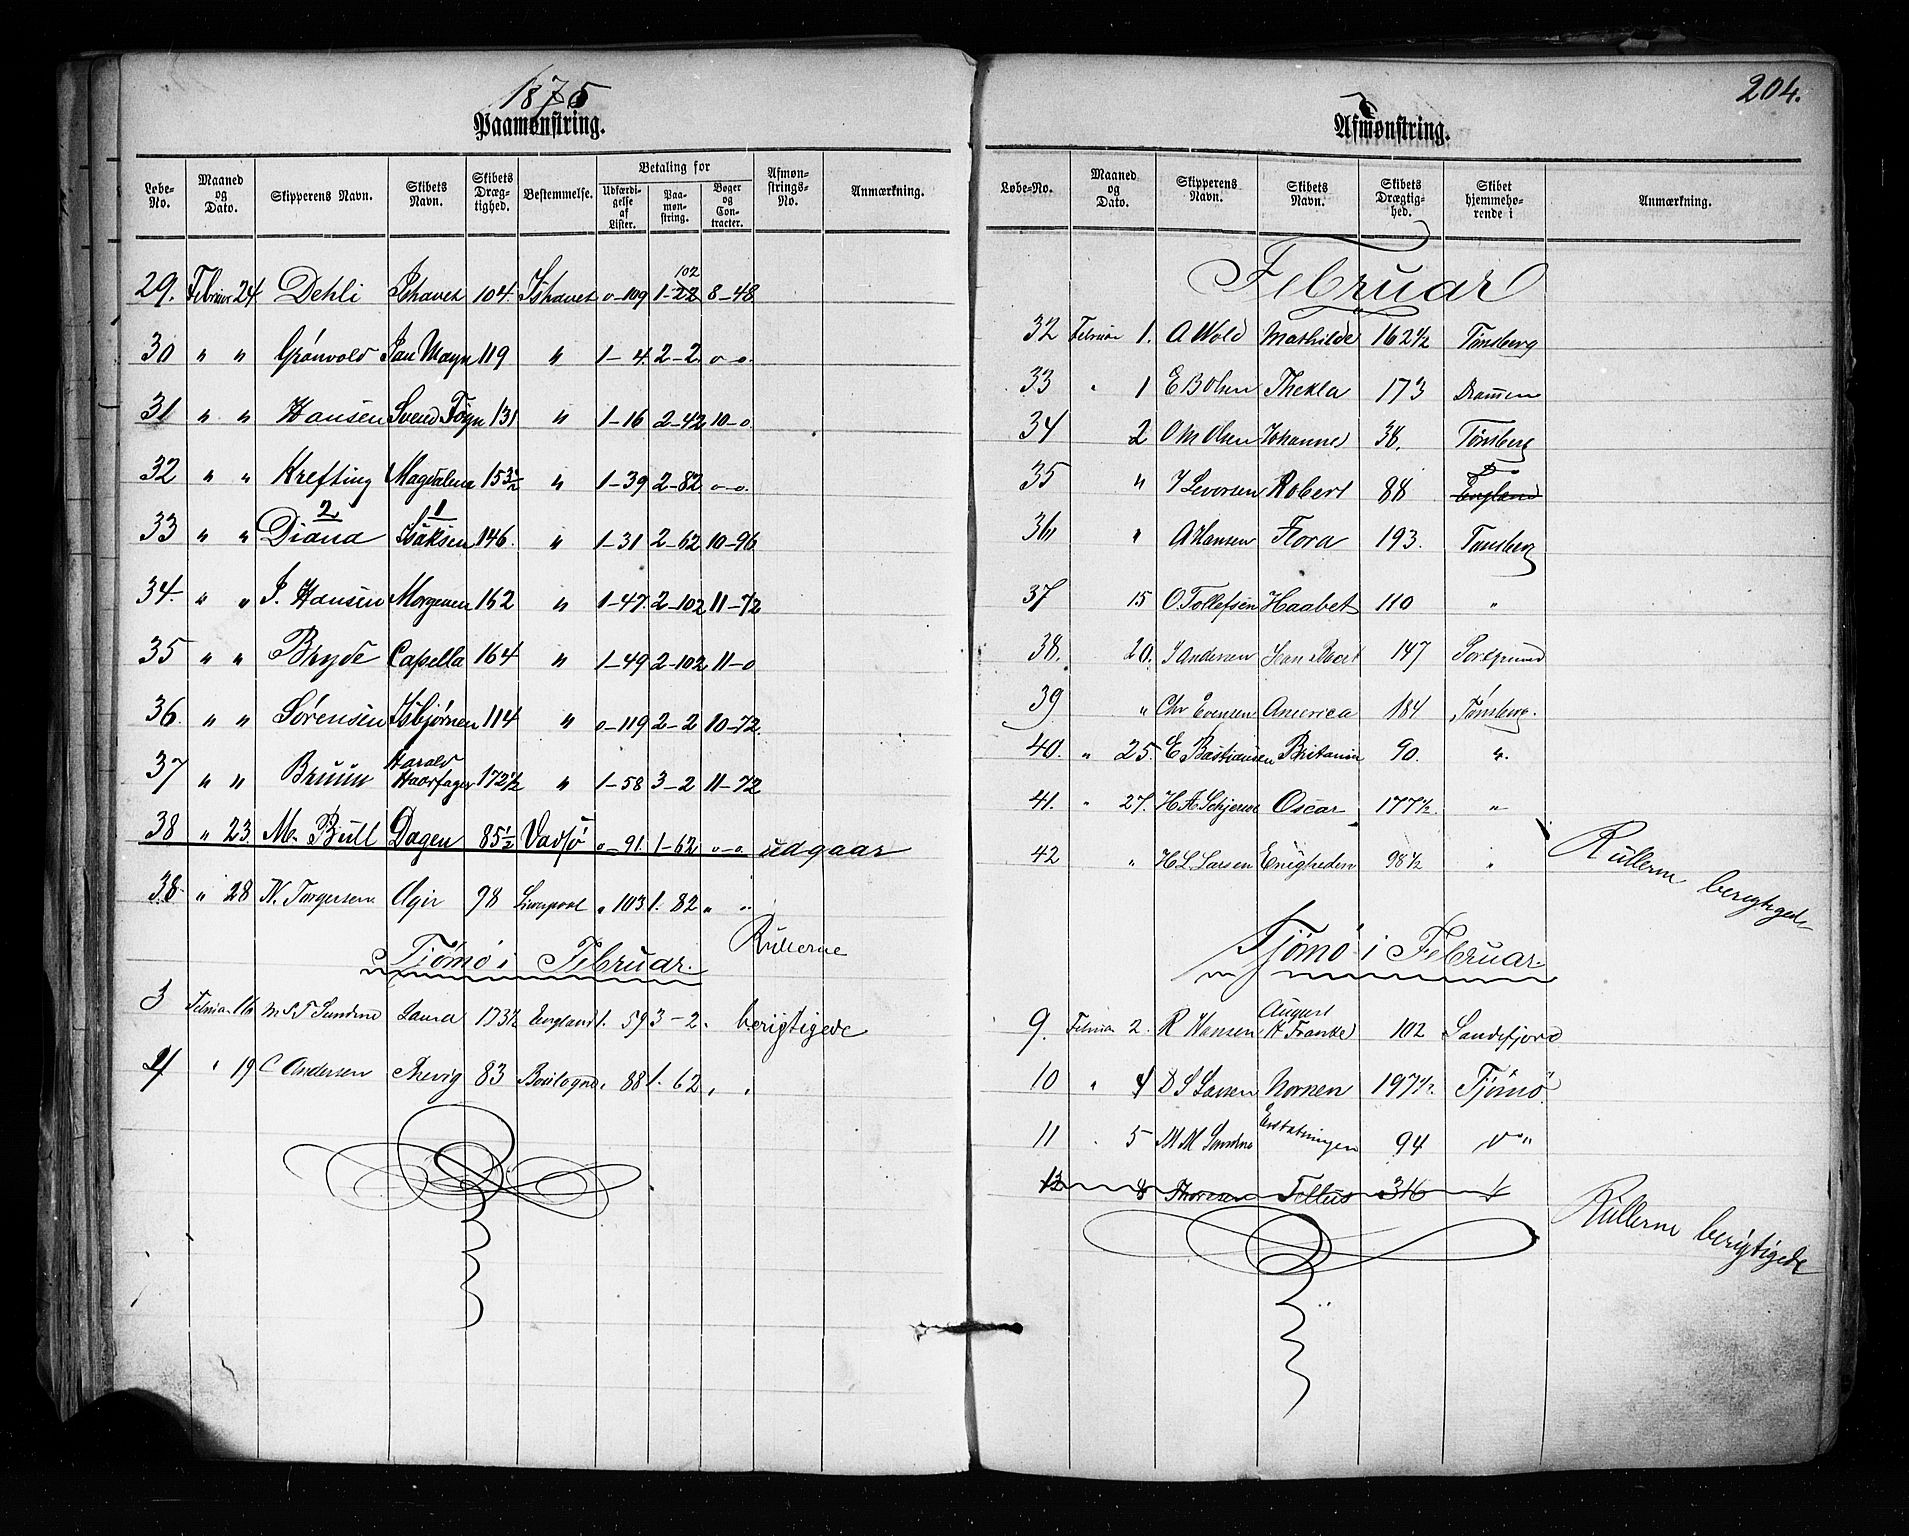 1875
Paamønstring.
Løbe-No. Maaned og Dato. Skipperens Navn. Skibets Navn. Skibets Dræg-tighed. Bestemmelse. Betaling for Udfærdi-gelse af Lister. Paa-mon-string. Bøger og Con-tracter. Afmøn-strings-No. Anmærkning.
29. Februar 24 Dehli Ishavet 104 Ishavet 0-109 1-22 102 8-48
30 " " Grönvold Jan Mayn 119 " 1-4. 2-2 0-0.
31 " " Hansen Svend Föyn 131 " 1-16 2-42 10-0
32 " " Krefting Magdalena 153½ " 1-39 2-82 0-0.
2 1
33 " " Diana Isaksen 146. " 1-31 2-62 10-96
34. " " J. Hansen Morgenen 162 " 1-47. 2-102 11-72
35 " " Bryde Capella 164 " 1-49 2-102 11-0
36. " " Sörensen Isbjørnen 114 " 0-119 2-2 10-72.
37 " " Bruun Harald Haarfager 172½ " 1-58 3-2 11-72
38 " 23. M. Bull Dagen 85½ Vadsø 0-91. 1-62 0-0. udgaar
38. " 28 N. Torgersen Ægir 98 Liverpool " 103 1. 82 " "
Tjömö i Februar. Rullerne
3 Februar 16 Laura 173½ England 1. 59 3-2. berigtigede
4 " 19 C Andersen 83 Boulogne " 88 1. 62 " "
204.
Afmønstring.
Løbe-No. Maaned og Dato. Skipperens Navn. Skibets Navn. Skibets Drægtig-hed. Skibet hjemmehø-rende i Anmærkning.
Februar
32 Februar 1. A Wold Mathilde 162½ Tönsberg
33 " 1 E B Olsen Thekla 173 Drammen
34 2 O M Olsen Johannes 38. Tönsberg
35 " J Levorsen Robert 88 England
36 " A Hansen Flora 193. Tönsberg
37 15 O Tollefsen Haabet 110 "
38. 20. J Andersen 147 Porsgrund
39 " Chr Evensen America 184 Tönsberg.
40. " 25. E Bastiansen Britania 90. "
41. " 27. Oscar 177½. "
42 " H L Larsen Enigheden 98½ "
Rullerne berigtigede
Tjömö i Februar.
9. Februar 2. R Hansen August H Franke 102 Sandefjord
10 " 4 D S Larsen Nornen 197½. Tjömö.
11 " 5 Erstatningen 94 "
12 8 Thoresen Tellus 316
Rullerne berigtigede